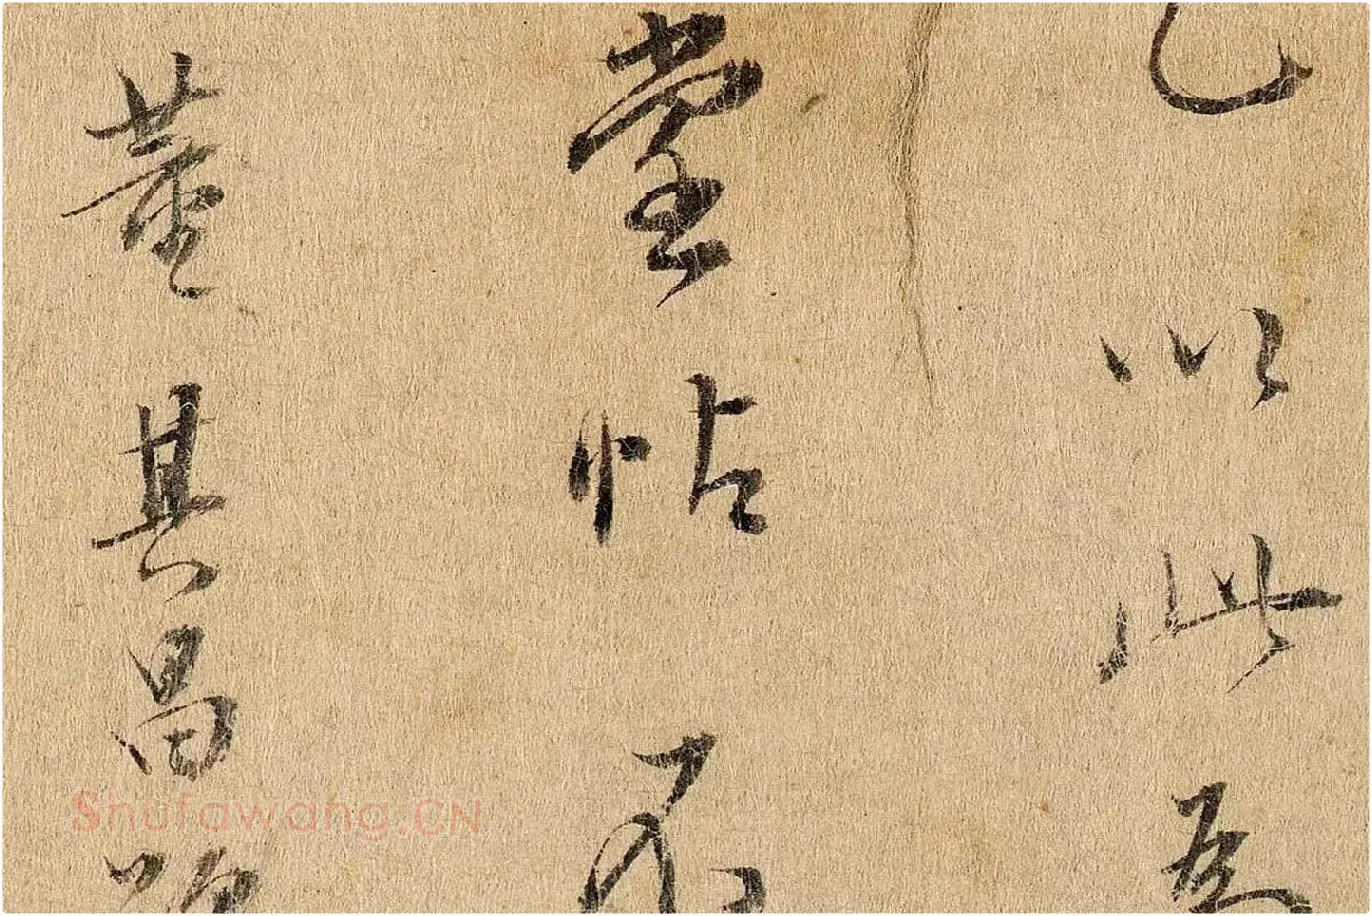 以此
堂帖不
董其昌
Shufawang.CN